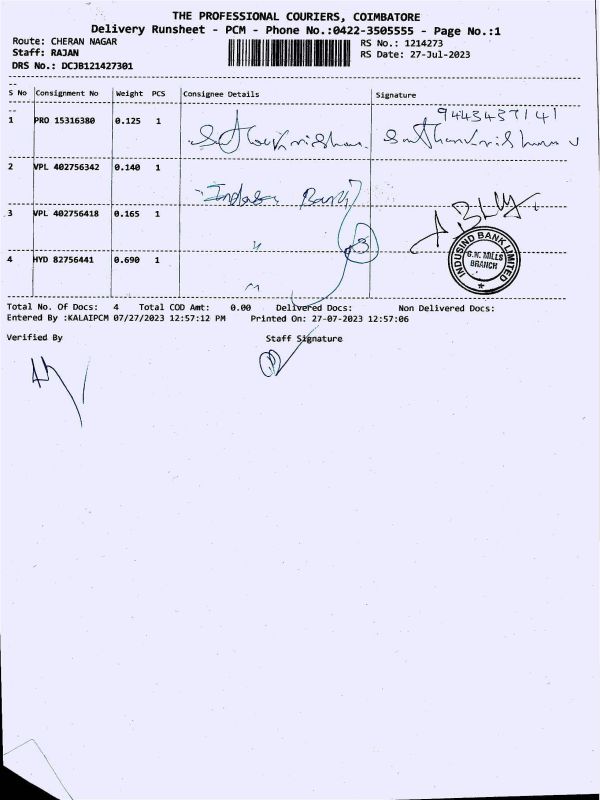 THE PROFESSIONAL COURIERS, COIMBATORE
Delivery Runsheet - PCM - Phone No.:0422-3505555 - Page No.:1
Route: CHERAN NAGAR RS No.: 1214273
Staff: RAJAN RS Date: 27-Jul-2023
DRS No.: DCJB121427301
S No Consignment No Weight PCS Consignee Details Signature
9443437141
1 PRO 15316380 0.125 1
2 VPL 402756342 0.140 1
Bank
3 VPL 402756418 0.165 1
3
INDUSIND BANK LIMITED
G.K. MILLS
BRANCH
4 HYD 82756441 0.690 1
Total No. Of Docs: 4 Total COD Amt: 0.00 Delivered Docs: Non Delivered Docs:
Entered By :KALAIPCM 07/27/2023 12:57:12 PM Printed On: 27-07-2023 12:57:06
Verified By Staff Signature